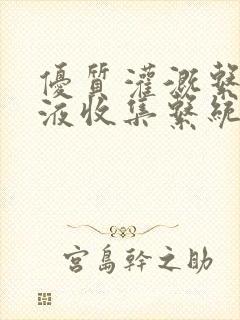 優質灌溉繫
液收集繫統
宮島幹之助